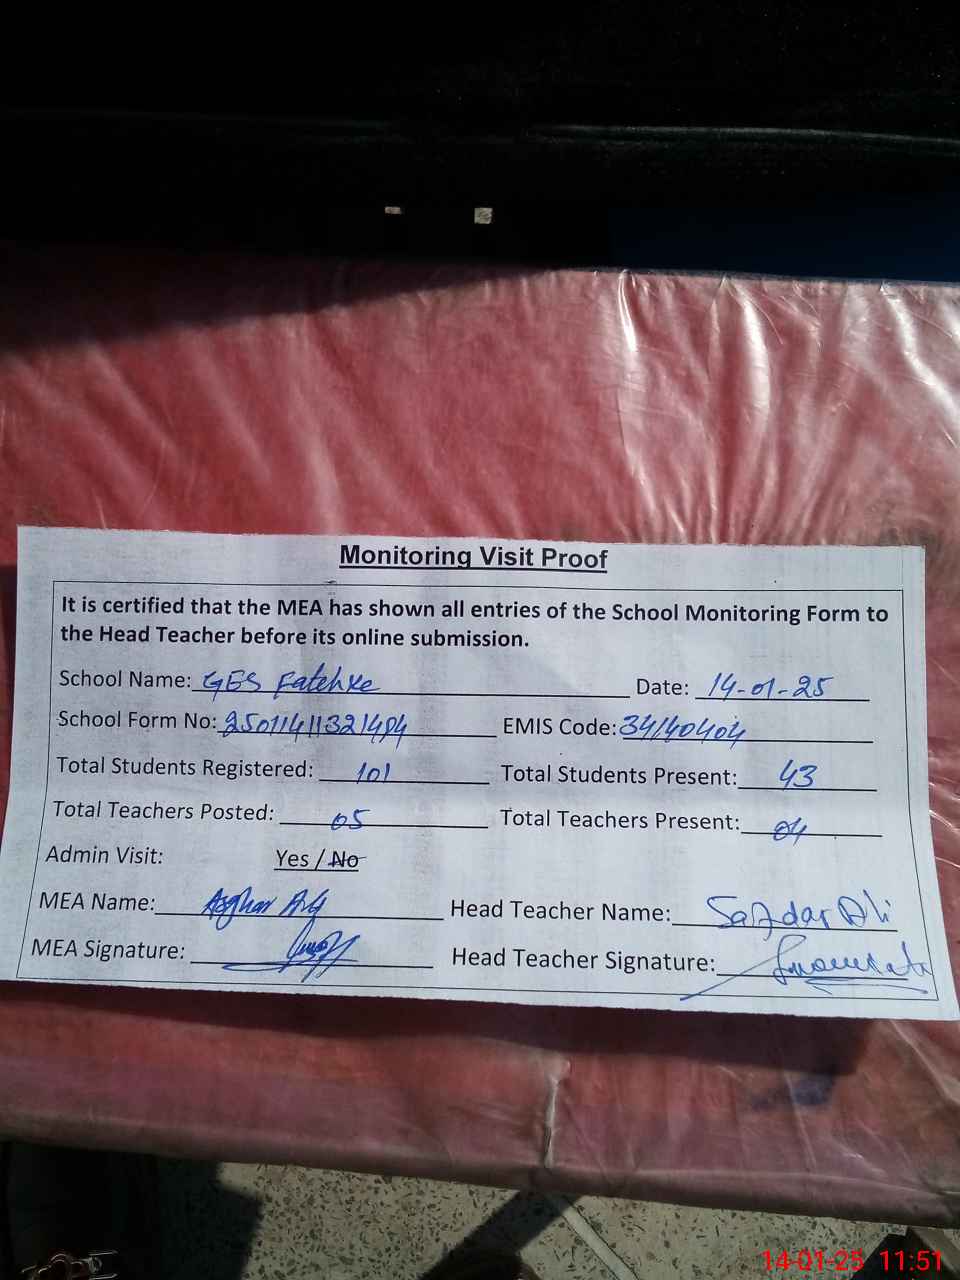 Monitoring Visit Proof
It is certified that the MEA has shown all entries of the School Monitoring Form to
the Head Teacher before its online submission.
School Name: GES Fatehke Date: 14-01-25
School Form No: 25011411321484 EMIS Code: 34140404
Total Students Registered: 101 Total Students Present: 43
Total Teachers Posted: 05 Total Teachers Present: 04
Admin Visit: Yes / No
MEA Name: Asghar Ali Head Teacher Name: Safdar Ali
MEA Signature: Head Teacher Signature:
14-01-25 11:51